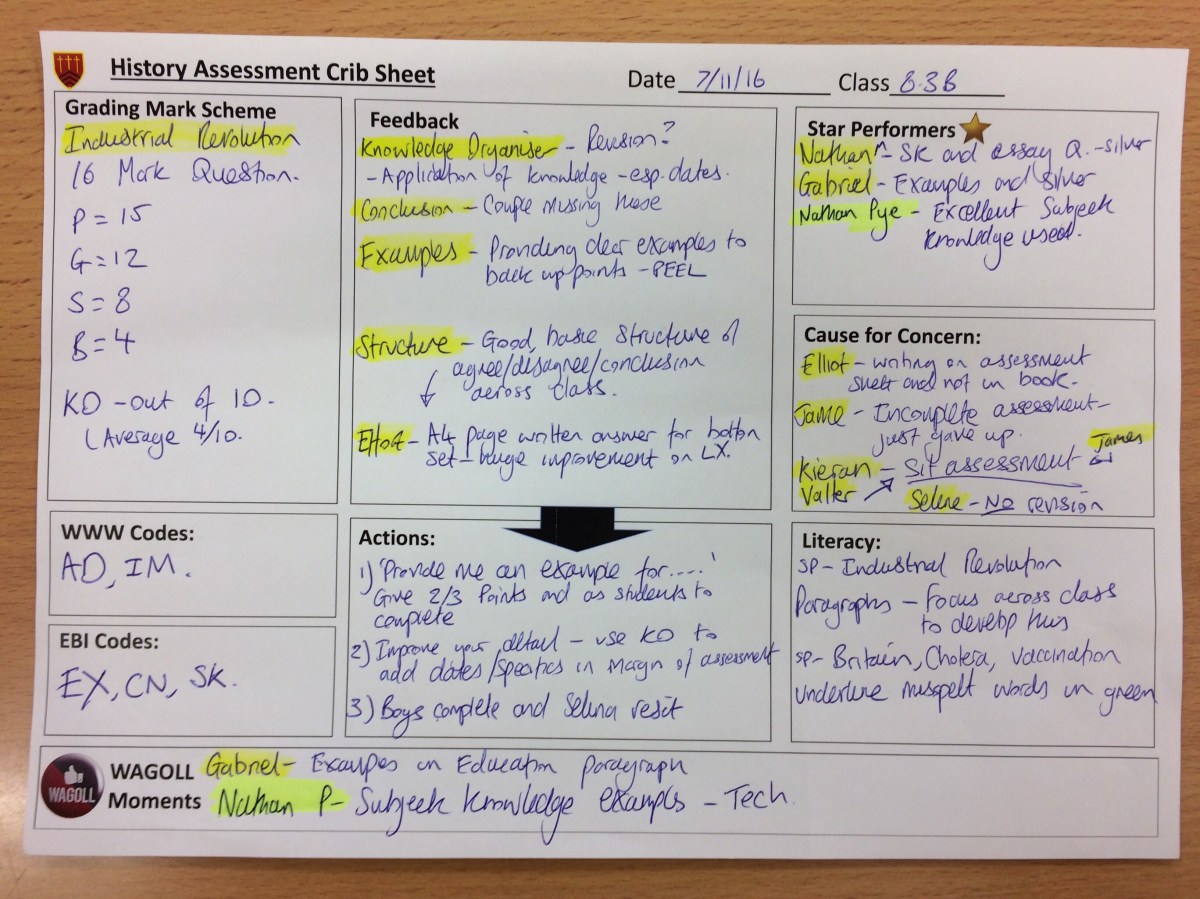 History Assessment Crib Sheet
Date 7/11/16 Class 8.3B
Grading Mark Scheme
Industrial Revolution
16 Mark Question.
P = 15
G = 12
S = 8
B = 4
KO - out of 10.
(Average 4/10.
WWW Codes:
AD, IM.
EBI Codes:
EX, CN, SK.
Feedback
Knowledge Organiser - Revision?
- Application of knowledge - esp. dates.
Conclusion - Couple missing these
Examples - Providing clear examples to
back up points - PEEL
Structure - Good, basic structure of
agree/disagree/conclusion
across class.
Effort - A4 page written answer for bottom
set - huge improvement on LX.
Actions:
1) 'Provide me an example for....'
Give 2/3 points and as students to
complete
2) Improve your detail - use KO to
add dates/specifics in margin of assessment
3) Boys complete and Selina resit
Star Performers
Nathan - SK and essay Q. - silver
Gabriel - Examples and silver
Nathan Pye - Excellent Subjeck
knowledge used.
Cause for Concern:
Elliot - writing on assessment
sheet and not in book.
Jame - Incomplete assessment -
just gave up.
James
Kieran - Sit assessment
Valter
Selene - No revision
Literacy:
SP - Industrial Revolution
Paragraphs - Focus across class
to develop this
SP - Britain, Cholera, vaccination
underline misspelt words in green
WAGOLL
WAGOLL Moments
Gabriel - Examples in Education paragraph
Nathan P - Subjeek knowledge examples - Tech.